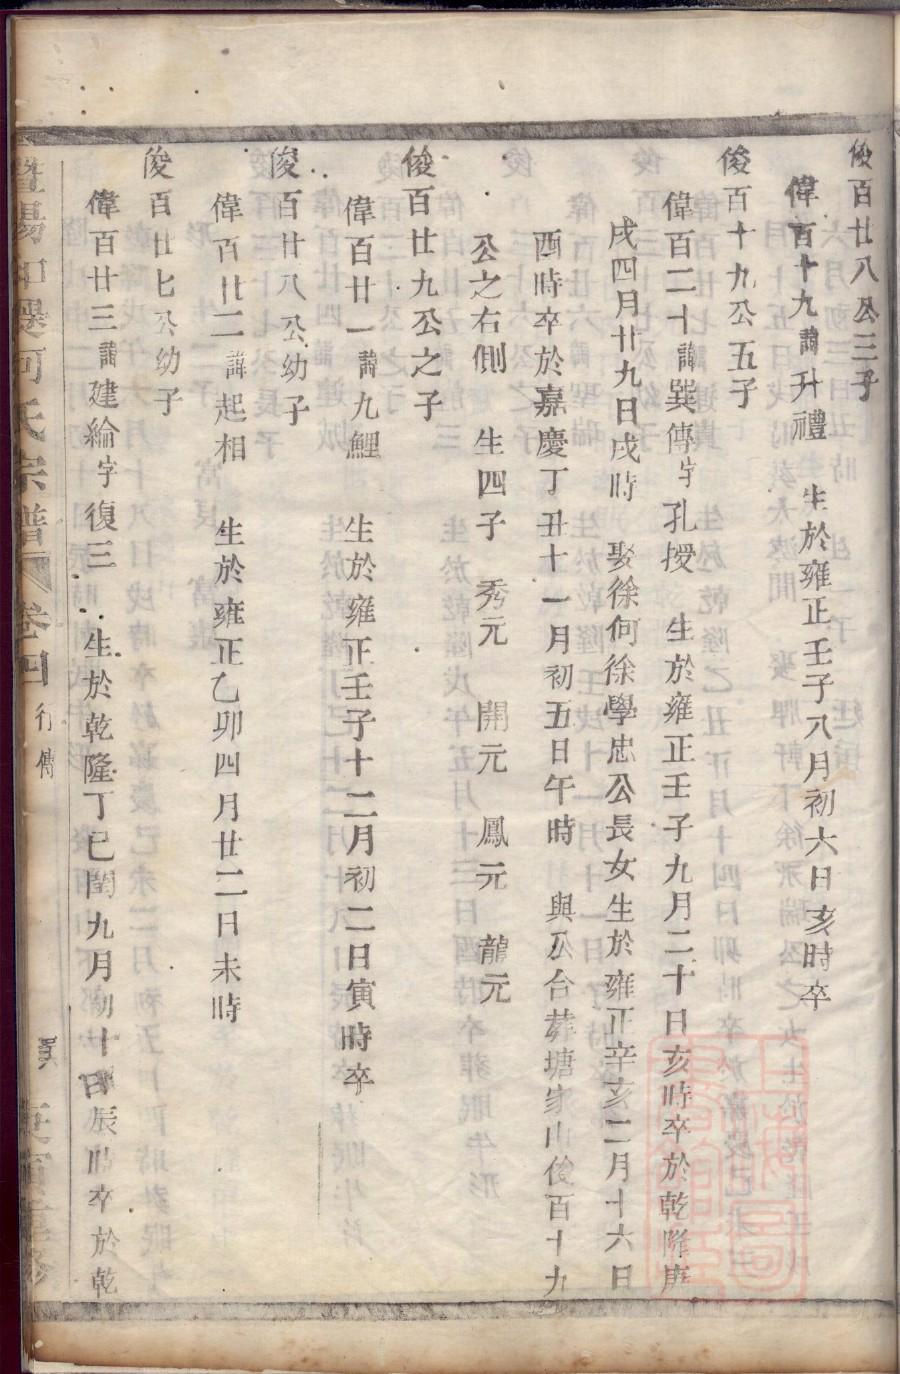 俊百廿八公三子
偉百十九諱升禮 生於雍正壬子八月初六日亥時卒
俊百十九公五子
偉百二十諱巽傳字孔授 生於雍正壬子九月二十日亥時卒於乾隆庚
戌四月廿九日戌時 娶徐何徐學忠公長女生於雍正辛亥二月十六日
酉時卒於嘉慶丁丑十一月初五日午時 與公合葬塘家山俊百十九
公之右側 生四子 秀元 開元 鳳元 龍元
俊百廿九公之子
偉百廿一諱九鯉 生於雍正壬子十二月初二日寅時卒
俊百廿八公幼子
偉百廿二諱起相 生於雍正乙卯四月廿二日未時
俊百廿七公幼子
偉百廿三諱建綸字復三 生於乾隆丁巳閏九月初十日辰時卒於乾
暨陽 何氏宗譜 卷四 行傳